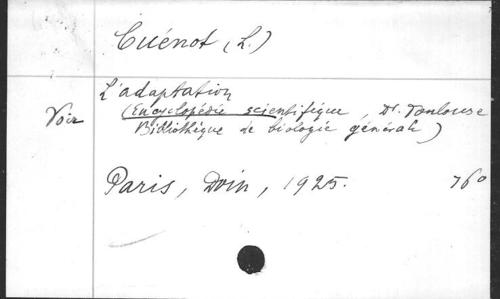 Cuénot (L.)
L'adaptation
Voir (Encyclopédie scientifique, Dr. Toulouse
Bibliothèque de biologie générale)
Paris, Doin, 1925. 760